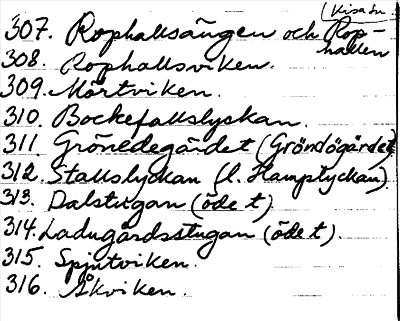 (Kisa sn.
307. Rophallsängen och Rop-
hallen
308. Rophallsviken.
309. Mörtviken.
310. Bockefallslyckan.
311. Grönedegärdet (Gröndögärdet)
312. Stallslyckan (l. Hamplyckan)
313. Dalstugan (öde t)
314. Ladugårdsstugan (öde t).
315. Spjutviken.
316. Åkviken.